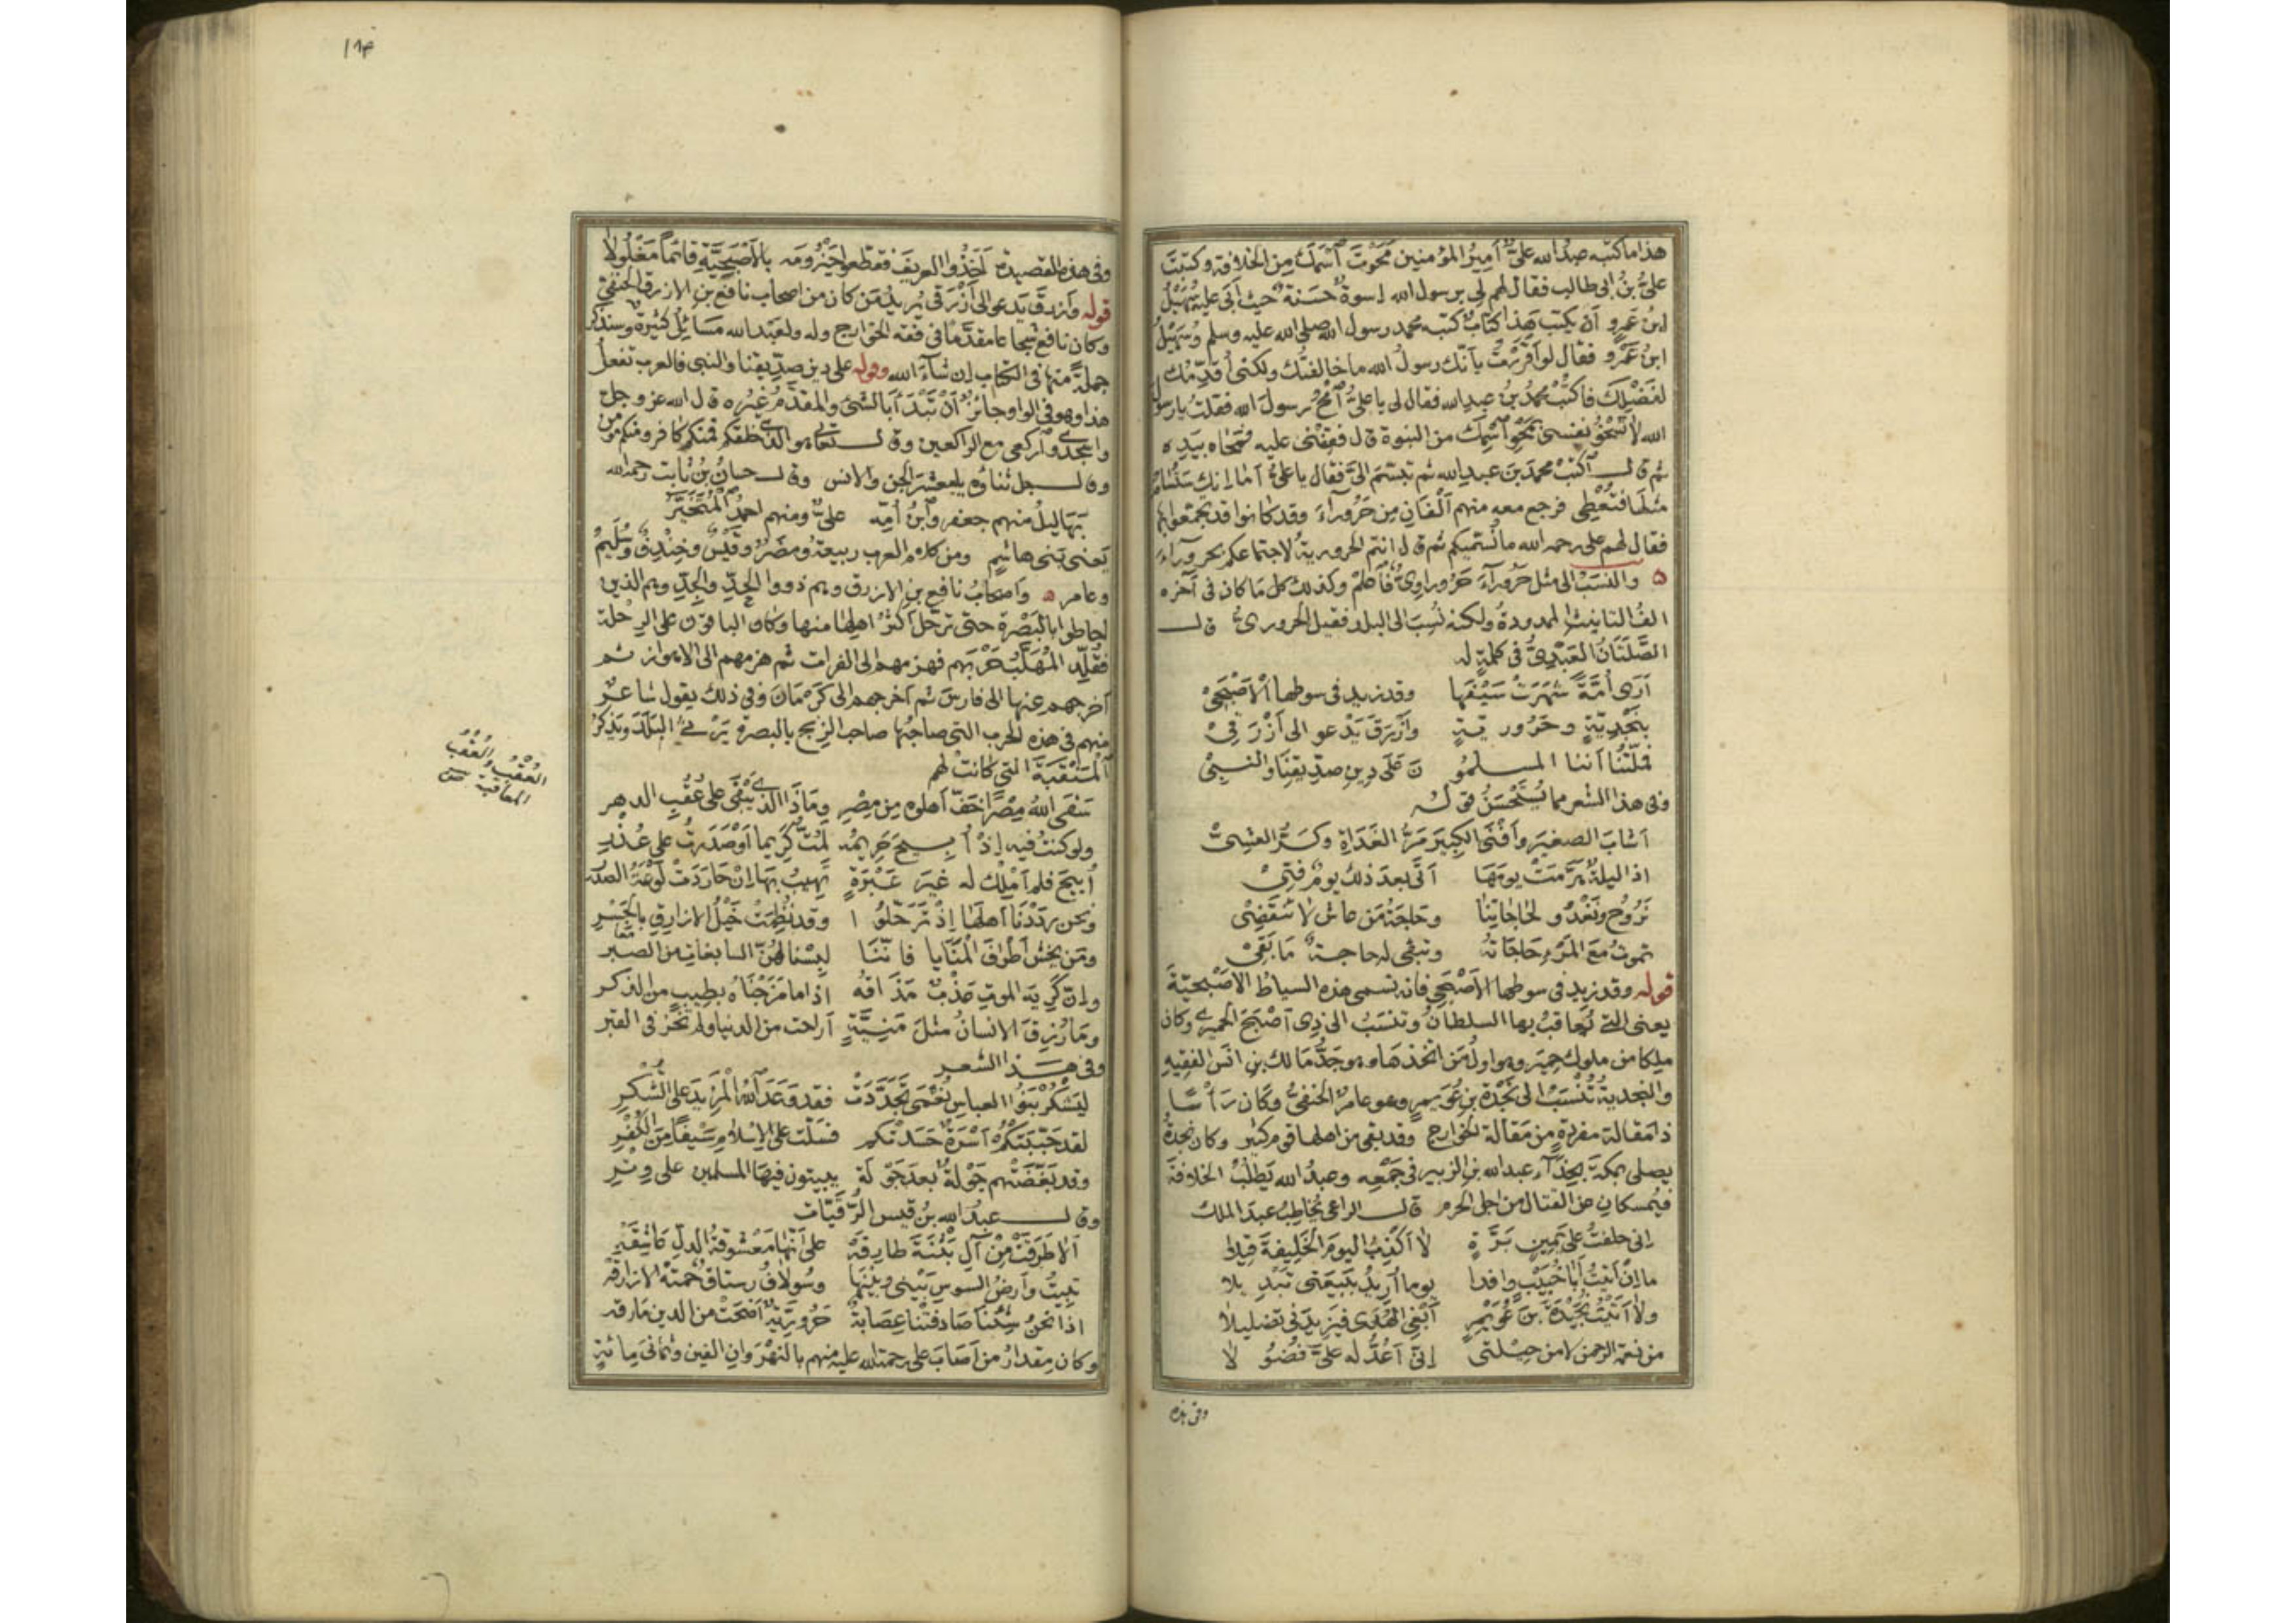 هذا ما كتبه عبد الله علىّ أمير المؤمنين محوت اسمك من الخلافة وكتبت
علىّ بن ابى طالب فقال لهم لى برسول الله اسوة حسنة حيث أبى عليه سهيل
ابن عمرو أن يكتب هذا كتاب كتبه محمد رسول الله صلى الله عليه وسلم وسهيل
ابن عمرو فقال لو أقررت بأنك رسول الله ما خالفتك ولكنى أقدّمك
لفضلك فاكتب محمد بن عبد الله فقال لى يا علىّ امح رسول الله فقلت يا رسول
الله لا تسخو نفسى بمحو اسمك من النبوة قال فقفنى عليه فمحاه بيده
ثم قال اكتب محمد بن عبد الله ثم تبسّم الىّ فقال يا علىّ أما انك ستسام
مثلها فتعطى فرجع معه منهم ألفان من حروراء وقد كانوا قد تجمعوا بها
فقال لهم على رحمه الله ما نسميكم ثم قال انتم الحرورية لاجتماعكم بحروراء
ه والنسب الى مثل حروراء حروراوىّ فاعلم وكذلك كل ما كان فى آخره
الف التانيث الممدودة ولكنه نسب الى البلد فقيل الحرورىّ قال
الصّلتان العبدىّ فى كلمة له
أرى أمّة شهرت سيفها وقد زيد فى سوطها الأصبحى
بنجديّة وحرورية وأزرق يدعو الى أزرقى
فملّتنا أننا المسلمو ن على دين صدّيقنا والنبىّ
وفى هذا الشعر مما يستحسن قوله
أشاب الصغير وأفنى الكبير مرّ الغداة وكرّ العشىّ
اذا ليلة هرّمت يومها أتى بعد ذلك يوم فتىّ
نروح ونغدو لحاجاتنا وحاجة من عاش لا تنقضى
تموت مع المرء حاجاته وتبقى له حاجة ما بقى
قوله وقد زيد فى سوطها الأصبحى فانه تسمى هذه السياط الاصبحيّة
يعنى التى يعاقب بها السلطان وتنسب الى ذى أصبح الحميرى وكان
ملكا من ملوك حمير وهو اول من اتخذها وهو جدّ مالك بن انس الفقيه
والنجدية تنسب الى نجدة بن عويمر وهو عامر الحنفىّ وكان رأسا
ذا مقالة مفردة من مقالة الخوارج وقد بقى من اهلها قوم كثير وكان نجدة
يصلى بمكة بحذاء عبد الله بن الزبير فى جمعه وعبد الله يطلب الخلافة
فيمسكان عن القتال من اجل الحرم قال الراعى يخاطب عبد الملك
انى حلفت على يمين برّة لا أكذب اليوم الخليفة قيلا
ما ان أتيت أبا خبيب وافدا يوما أريد ببيعتى تبديلا
ولا أتيت نجيدة بن عويمر أبغى الهدى فيزيدنى تضليلا
من نعمة الرحمن لا من حيلتى انى أعدّ له علىّ فضولا
وفى هذه
١٨٣
وفى هذه القصيدة أخذوا العريف فقطعوا حيزومه بالأصبحيّة قائما مغلولا
قوله وأزرق يدعو الى أزرقى يريد من كان من اصحاب نافع بن الازرق الحنفى
وكان نافع شجاعا مقدّما فى فقه الخوارج وله ولعبد الله مسائل كثيرة وسنذكر
جملة منها فى الكتاب ان شاء الله وقوله على دين صدّيقنا والنبى فالعرب تفعل
هذا وهو فى الواو جائز أن تبدأ بالشىء والمقدّم غيره قال الله عز وجل
واسجدى واركعى مع الراكعين وقال تعالى هو الذى خلقكم فمنكم كافر ومنكم مؤمن
وقال جل ثناؤه يا معشر الجن والانس وقال حسان بن ثابت رحمه الله
بهاليل منهم جعفر وابن أمّه علىّ ومنهم احمد المتخيّر
يعنى بنى هاشم ومن كلام العرب ربيعة ومضر وقيس وخندف وسليم
وعامر ه واصحاب نافع بن الازرق وهم ذوو الحدّ والجدّ وهم الذين
احاطوا بالبصرة حتى ترحّل أكثر اهلها منها وكان الباقون على الرحلة
فقلّد المهلّب حربهم فهزمهم الى الفرات ثم هزمهم الى الاهواز ثم
أخرجهم عنها الى فارس ثم أخرجهم الى كرمان وفى ذلك يقول شاعر
منهم فى هذه الحرب التى صاحبها صاحب الزنج بالبصرة يرثى البلد ويذكر
المنقبة التى كانت لهم
سقى الله مصرا خفّ أهلوه من مصر وماذا الذى يبقى على عقب الدهر
ولو كنت فيه إذ أبيح حريمه لمتّ كريما أو صدرت على عذر
أبيح فلم أملك له غير عبرة تهيب بها ان حاردت لوعة الصدر
ونحن رددنا أهلها إذ ترحّلوا وقد نظمت خيل الازارق بالجسر
ومن يخش أطراف المنايا فاننا لبسنا لهنّ السابغات من الصبر
وانّ كريه الموت عذب مذاقه اذا ما مزجناه بطيب من الذكر
وما رزق الانسان مثل منيّة أراحت من الدنيا ولم تخز فى القبر
وفى هذا الشعر
ليشكر بنو العباس نعمى تجدّدت فقد وعد الله المزيد على الشكر
لقد جنّبتكم أسرة حسدتكم فسلّت على الاسلام سيفا من الكفر
وقد بغّضتهم جولة بعد جولة يبيتون فيها المسلمين على وتر
وقال عبد الله بن قيس الرقيّات
ألا طرقت من آل بثنة طارقه على أنها معشوقة الدلّ عاشقه
تبيت وأرض السوس بينى وبينها وسولاف رستاق حمته الازارقه
اذا نحن شئنا صادفتنا عصابة حروريّة أضحت من الدين مارقه
وكان مقدار من أصاب على رحمة الله عليه منهم بالنهروان الفين وثمانى مائة
العقب والعقب
المعاقبة صح